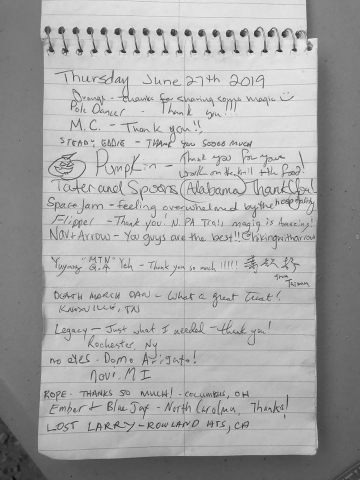 Thursday June 27th 2019
Orange - thanks for sharing some magic
Pole Dancer - Thank you!!!
M.C. - Thank you!!
STEADY EDDIE - THANK YOU SOOOO MUCH
PUMPKin - Thank you for your
work on the trail + the food!
Tater and Spoons (Alabama) Thank You!
Space Jam - feeling overwhelmed by the hospitality
Flipper - Thank you! N. PA Trail magic is Amazing!
Nav + Arrow - You guys are the best!! @hikingwitharrow
"MTN" Yeh - Thank you so much !!!!!
from Taiwan
DEATH MARCH DAN - What a great treat!
KNOXVILLE, TN
Legacy - Just what I needed - thank you!
Rochester Ny
no eyes - Domo Arigato!
Novi, MI
ROPE - THANKS SO MUCH! - COLUMBUS, OH
Ember + Blue Jay - North Carolina, Thanks!
LOST LARRY - ROWLAND HTS, CA